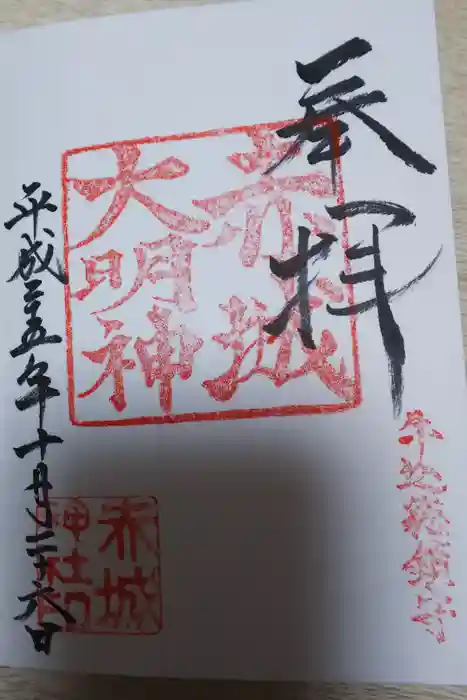 奉拝
牛込總鎮守
赤城
大明神
赤城
神社
平成二十五年十月二十六日